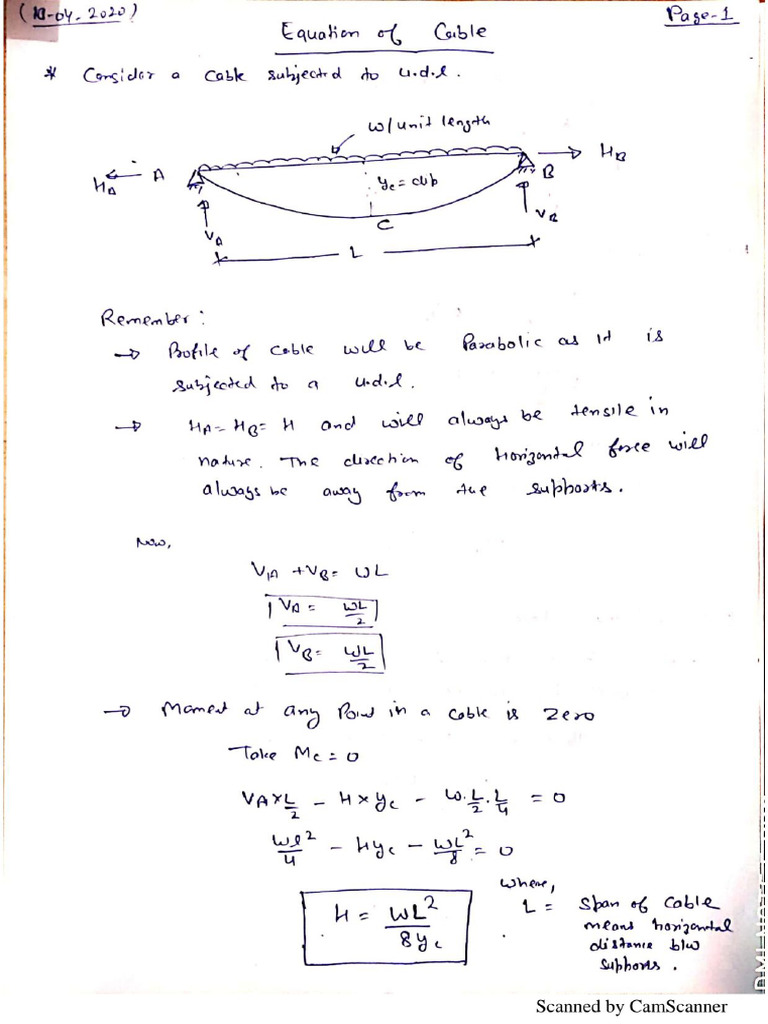 (10-04-2020)
Page-1
Equation of Cable
* Consider a cable subjected to u.d.l.
w/unit length
HA
A
yc = dip
B
HB
VA
C
VB
L
Remember:
→ Profile of cable will be Parabolic as it is
subjected to a u.d.l.
→ HA = HB = H and will always be tensile in
nature. The direction of Horizontal force will
always be away from the supports.
Now,
VA + VB = WL
VA = WL/2
VB = WL/2
→ Moment at any Point in a cable is zero
Take Mc = 0
VA × L/2 - H × yc - W.L/2.L/4 = 0
Wl²/4 - Hyc - WL²/8 = 0
H = WL²/8yc
where,
L = Span of cable
means horizontal
distance b/w
supports.
Scanned by CamScanner